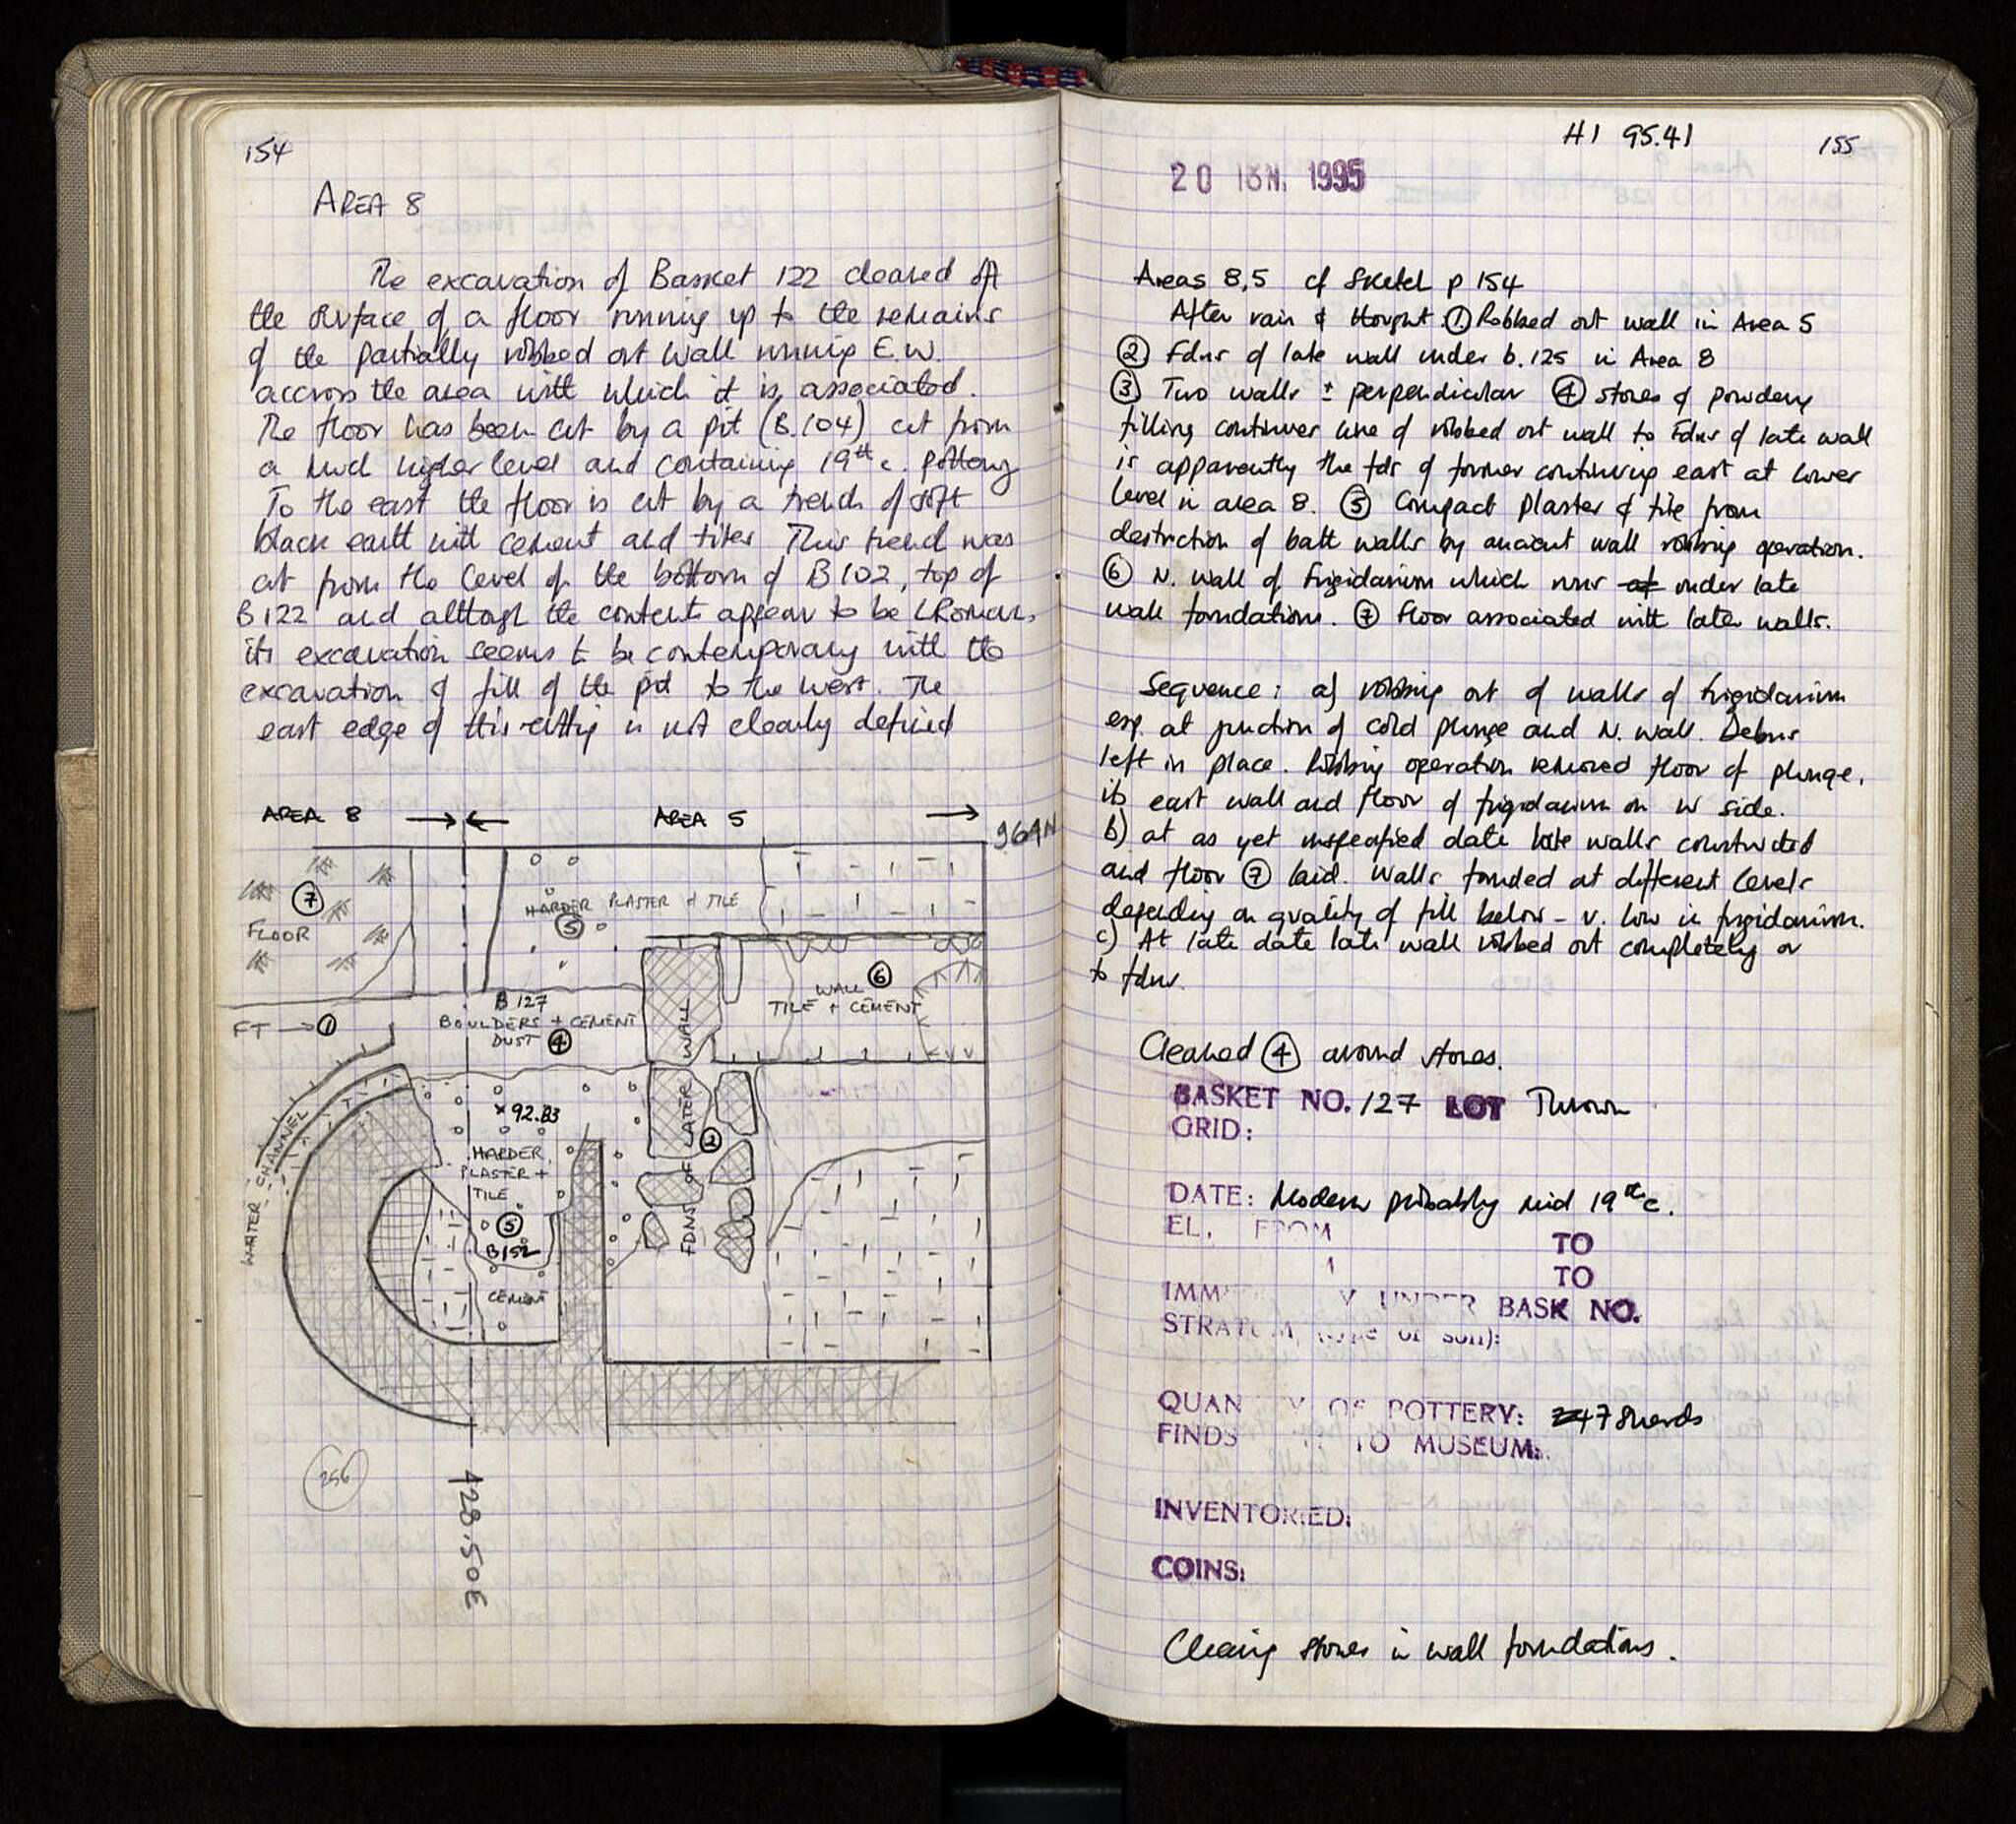 154
AREA 8
The excavation of Basket 122 cleared off
the surface of a floor running up to the remains
of the partially robbed out wall running E.W.
accross the area with which it is associated.
The floor has been cut by a pit (B.104) cut from
a much higher level and containing 19th c. pottery
To the east the floor is cut by a trench of soft
black earth with cement and tiles This trench was
cut from the level of the bottom of B102, top of
B122 and although the contents appear to be LRoman,
its excavation seems to be contemporary with the
excavation of fill of the pit to the west. The
east edge of this cutting is not clearly defined
AREA 8
AREA 5
964N
7
FLOOR
HARDER PLASTER + TILE
5
WALL 6
TILE + CEMENT
FT → 1
B 127
BOULDERS + CEMENT
DUST 4
FDNS OF LATER WALL
2
WATER CHANNEL
× 92.83
HARDER
PLASTER +
TILE
5
B152
CEMENT
256
428.50E
H1 95.41
155
20 JUN. 1995
Areas 8,5 cf Sketch p 154
After rain & thought. 1 Robbed out wall in Area 5
2 Fdns of late wall under b.125 in Area 8
3 Two walls ± perpendicular 4 stones & powdery
filling continues line of robbed out wall to Fdns of late wall
is apparently the fds of former continuing east at lower
level in area 8. 5 Compact plaster & tile from
destruction of bath walls by ancient wall robbing operation.
6 N. wall of Frigidarium which runs at under late
wall foundations. 7 Floor associated with later walls.
Sequence: a) robbing out of walls of frigidarium
esp. at junction of cold plunge and N. wall. Debris
left in place. Robbing operation removed floor of plunge,
its east wall and floor of frigidarium on W side.
b) at as yet unspecified date late walls constructed
and floor 7 laid. Walls founded at different levels
depending on quality of fill below - v. low in frigidarium.
c) At late date late wall robbed out completely or
to fdns.
Cleaned 4 around stones.
BASKET NO. 127 LOT Thrown
GRID:
DATE: Modern probably mid 19th c.
EL. FROM TO
TO
UNDER BASK NO.
STRATUM (type of soil):
QUANTITY OF POTTERY: 47 sherds
FINDS TO MUSEUM:
INVENTORIED:
COINS:
Cleaning stones in wall foundations.